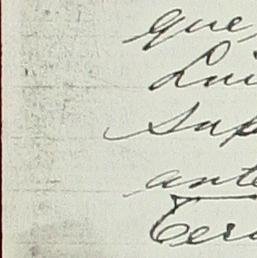 que
Lui
Sup
ante
Cerv